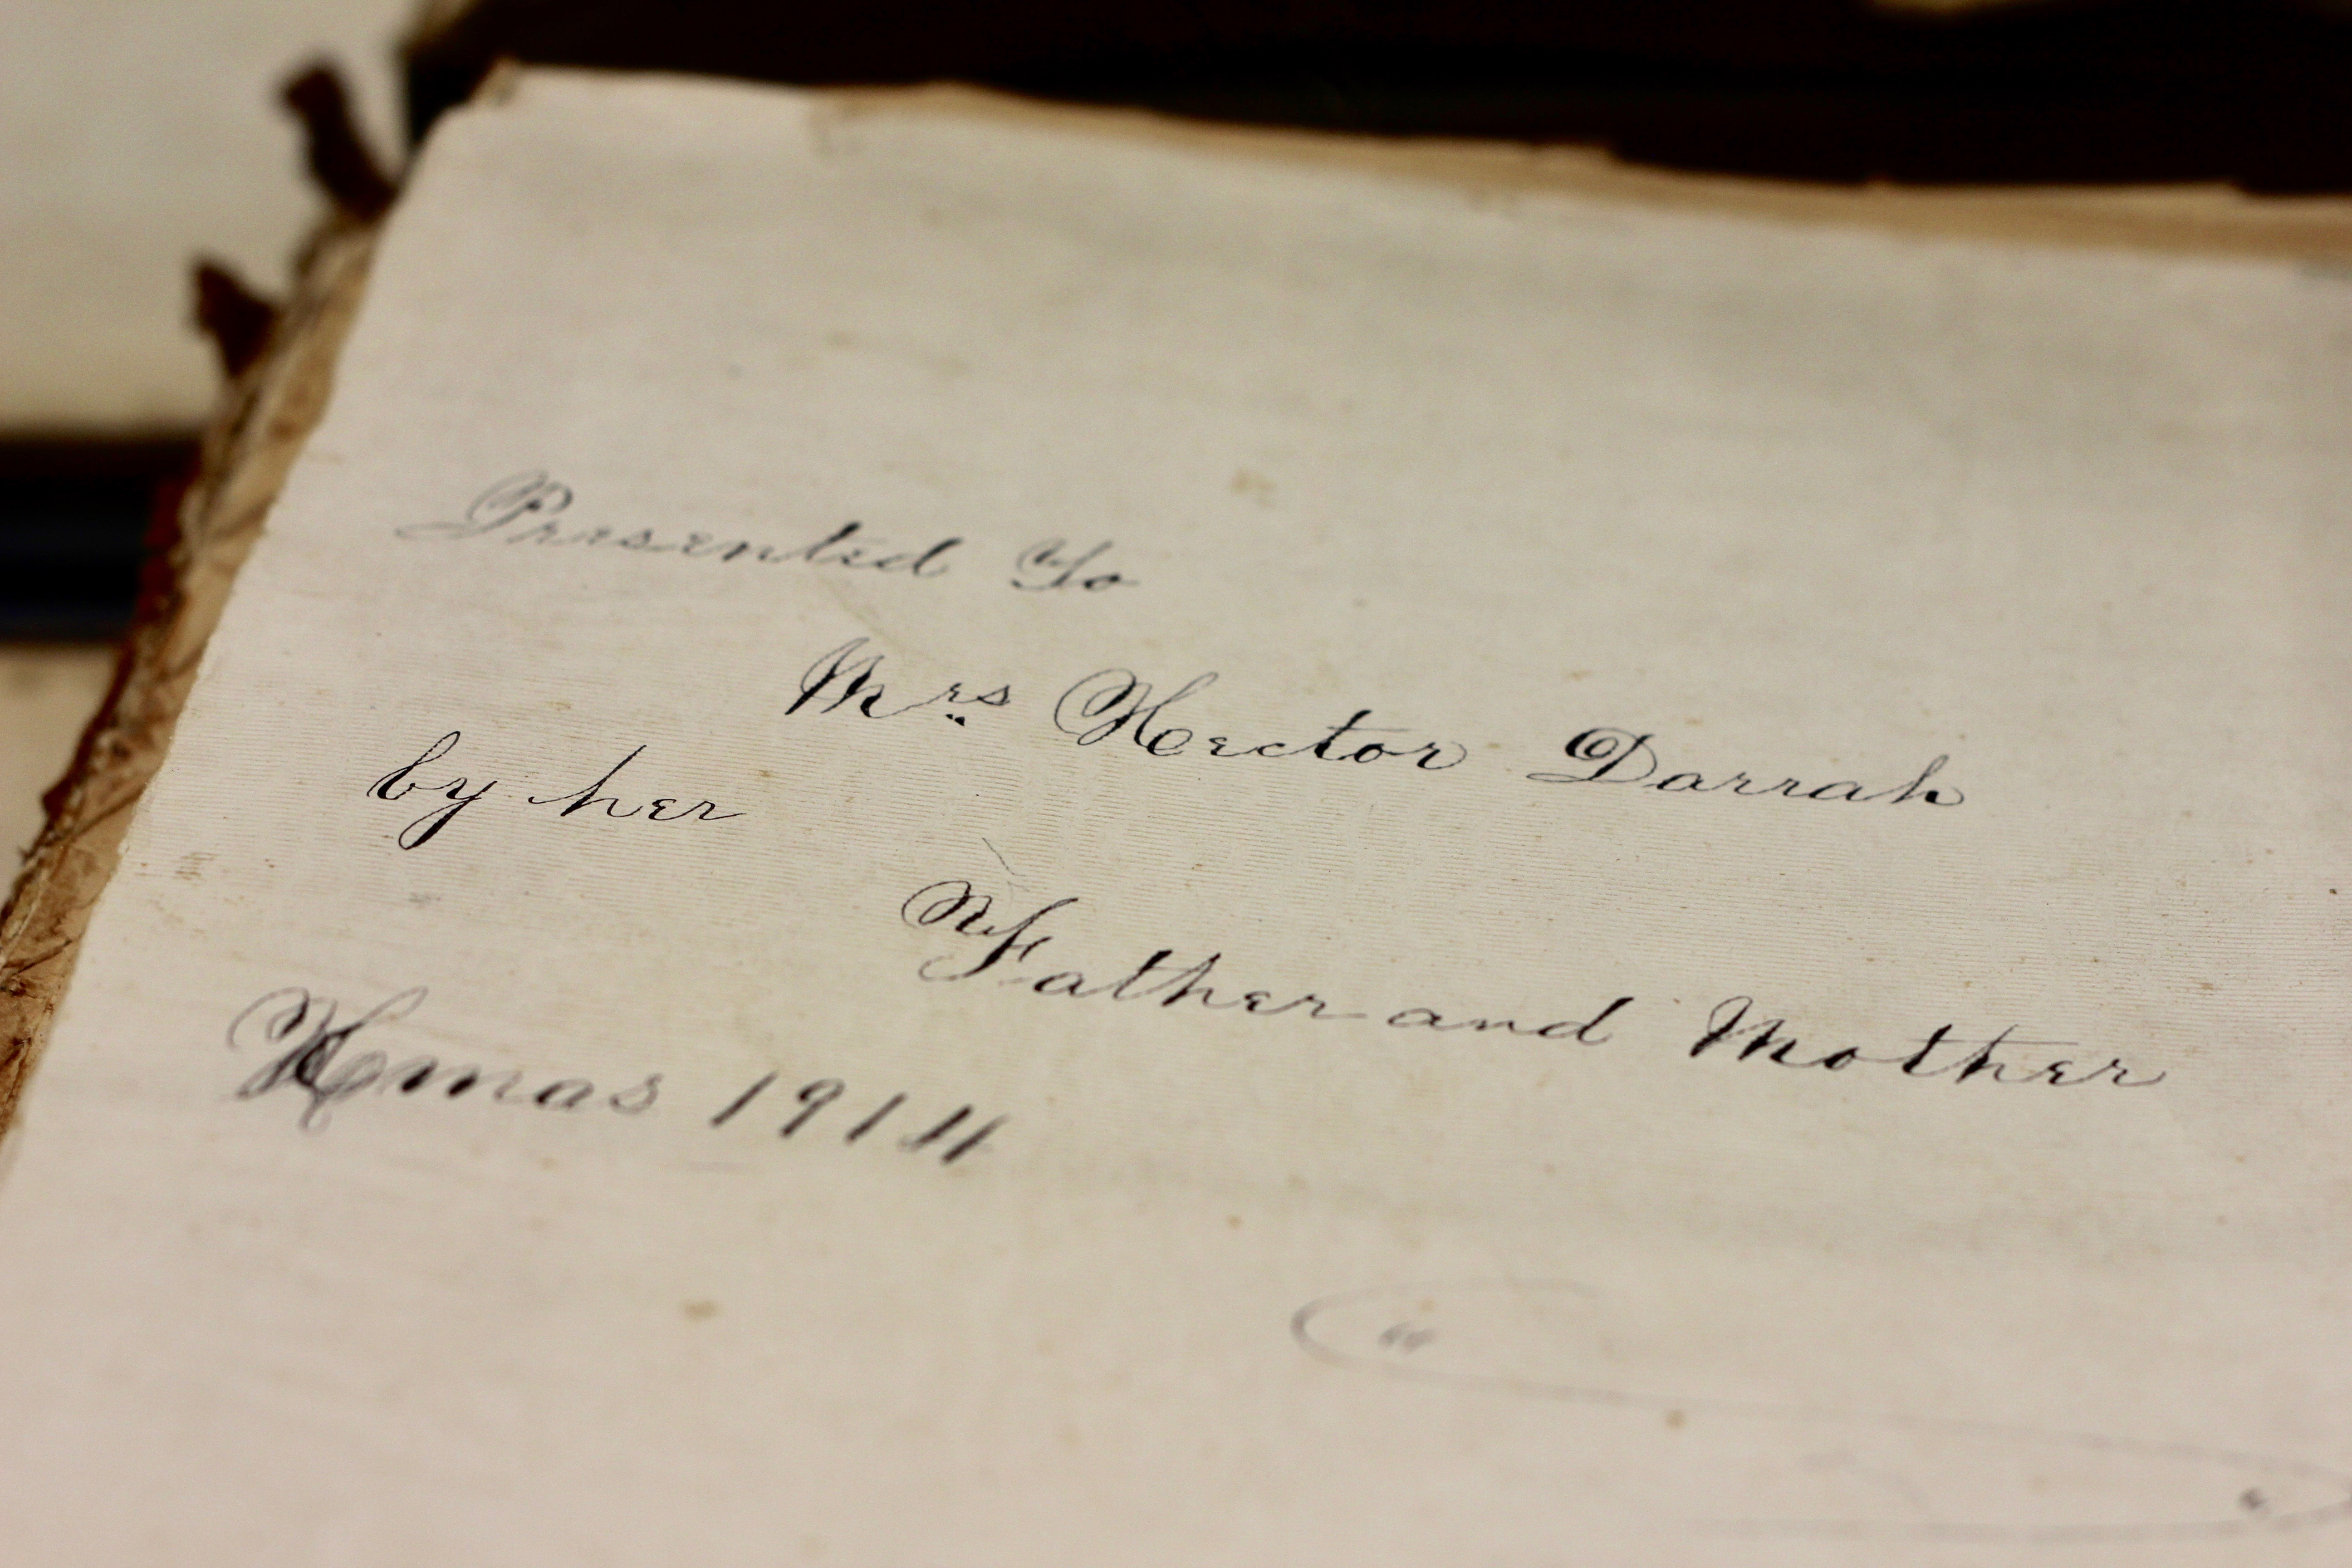 Presented To
Mrs Hector Darrah
by her
Father and Mother
Xmas 1914